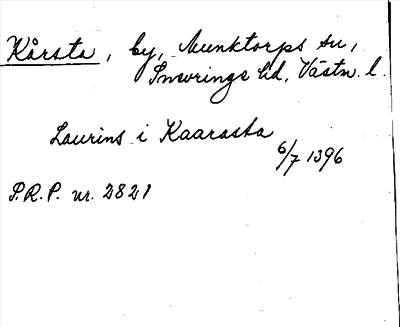 Kårsta, by, Munktorps sn,
Snevringe hd, Västm. l.
Laurins i Kaarasta
6/7 1396
P.R.P. nr. 2821